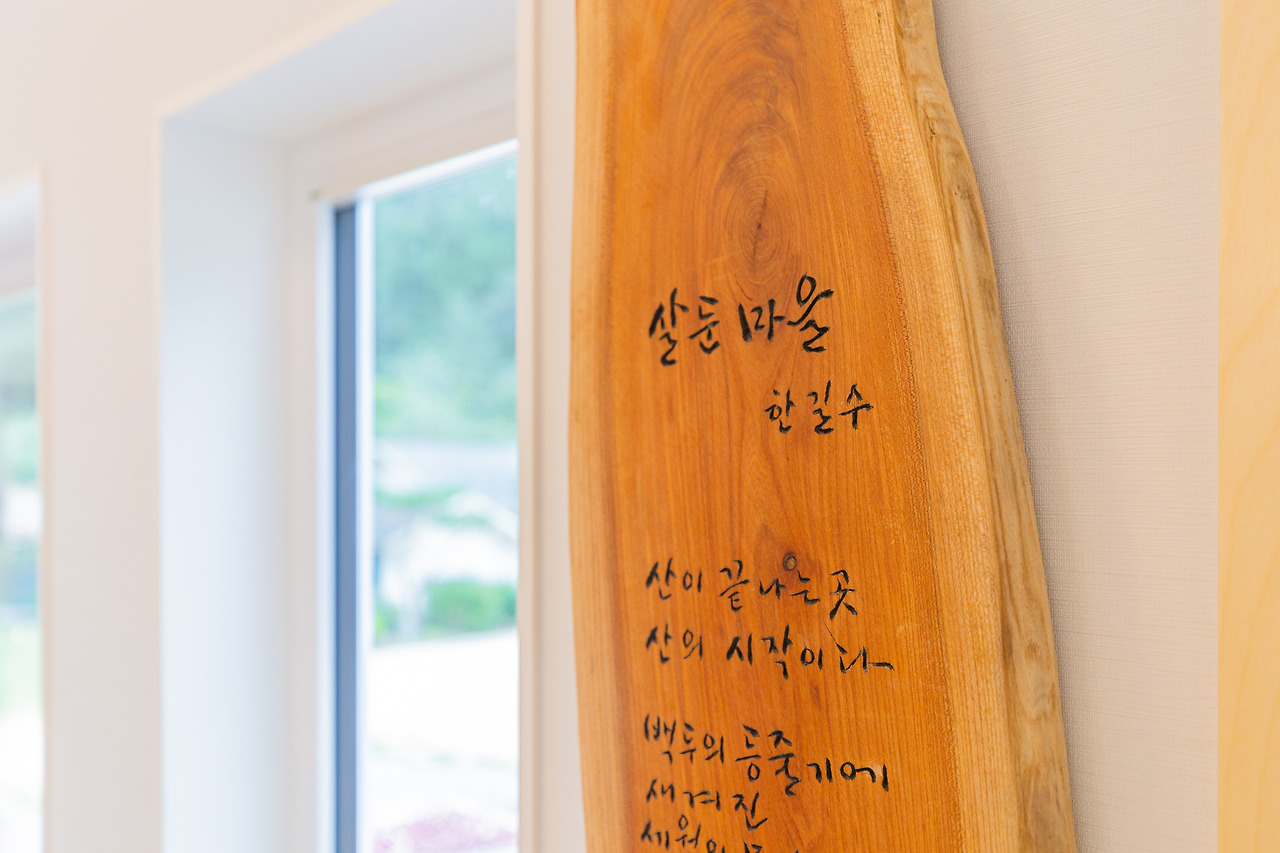 살둔 마을
한길수
산이 끝나는 곳
산의 시작이다
백두의 등줄기에
새겨진
세월의